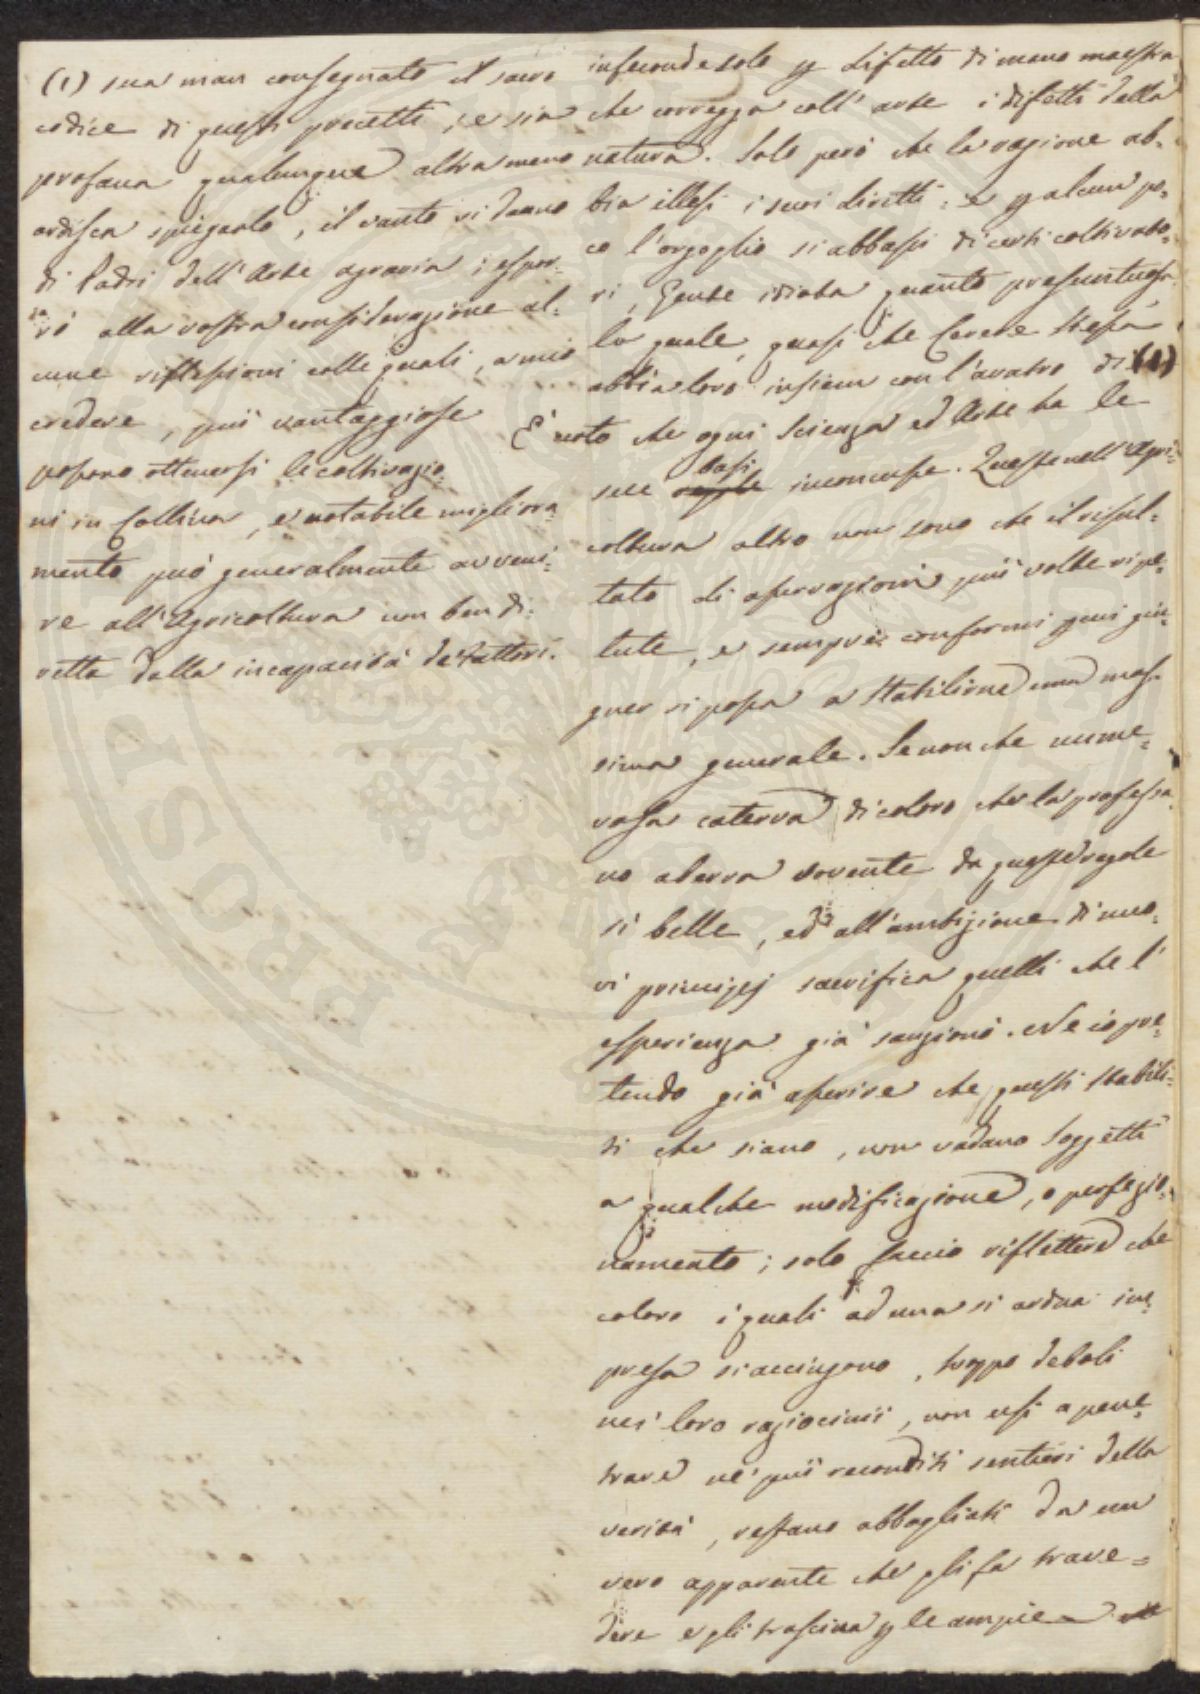 (1) sua man consegnato il sacro
codice di questi precetti, e sia
profana qualunque altra mano
ardisca spiegarlo, il vanto si danno
di Padri dell'Arte agraria; espor=
rò alla vostra considerazione al=
cune riflessioni colle quali, a mio
credere, più vantaggiose
possono ottenersi le coltivazio=
ni in Collina, e notabile migliora=
mento può generalmente avveni=
re all'Agricoltura non ben di=
retta dalla incapacità de' fattori.
infeconde solo p difetto di mano maestra
che corregga coll'arte i difetti della
natura. Solo però che la ragione ab=
bia illesi i suoi diretti: e p alcun po=
co l'orgoglio si abbassi di certi coltivato=
ri, Gente idiota quanto presuntuosa
la quale, quasi che Cerere stessa
abbia loro insiem con l'aratro di (1)
È noto che ogni Scienza ed Arte ha le
sue basi inconcusse. Queste nell'Agri=
coltura altro non sono che il risul=
tato di osservazioni più volte ripe=
tute, e sempre conformi
quer si possa a stabilirne una mas=
sima generale. Se non che nume=
rosa caterva di coloro che la professa
no aberra sovente da queste regole
sì belle, ed all'ambizione di nuo=
vi principj sacrifica quelli che l'
esperienza già sanzionò. Ne io pre=
tendo già asserire che questi stabili=
ti che siano, non vadano soggetti
a qualche modificazione, o perfezio=
namento; solo faccio riflettere che
coloro i quali ad una sì ardua im=
presa si accingono, troppo deboli
nei loro raziocinii, non usi a pene=
trare ne' più reconditi sentieri della
verità, restano abbagliati da un
vero apparente che gli fa trave=
dere e gli trascina p le ampie